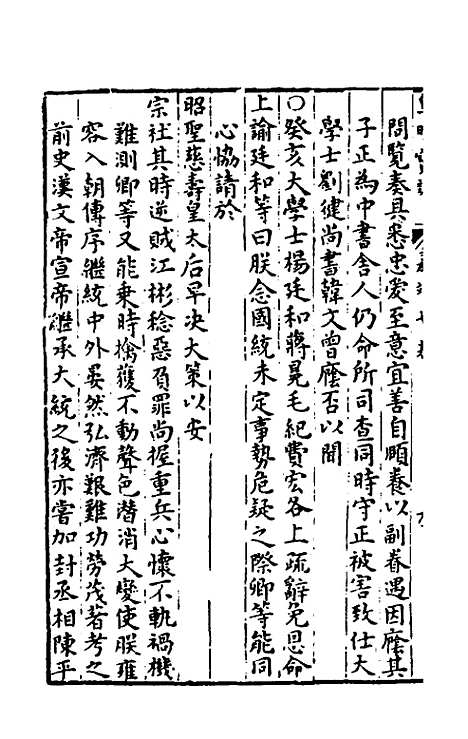 閱覽奏具悉忠愛至意宜善自頤養以副眷遇因廕其
子正為中書舍人仍命所司查同時守正被害致仕大
學士劉健尚書韓文曾廕否以聞
○癸亥大學士楊廷和蔣冕毛紀費宏各上疏辭免恩命
上諭廷和等曰朕念國統未定事勢危疑之際卿等能同
心協請於
昭聖慈壽皇太后早决大策以安
宗社其時逆賊江彬稔惡負罪尚握重兵心懷不軌禍機
難測卿等又能乘時擒獲不動聲色潛消大變使朕雍
容入朝傳序繼統中外晏然弘濟艱難功勞茂著考之
前史漢文帝宣帝繼承大統之後亦嘗加封丞相陳平